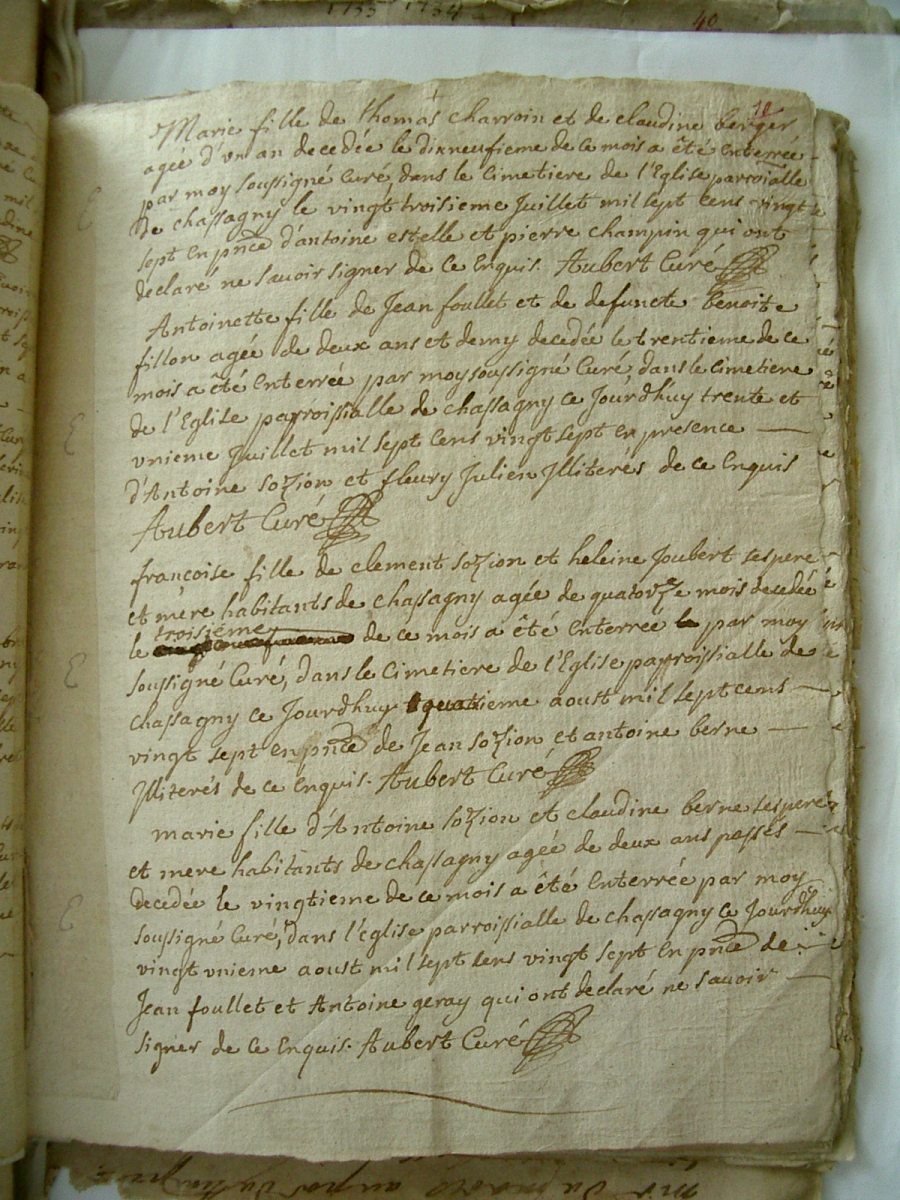 1733 1734
40
10
Marie fille de thomas charroin et de claudine berger
agée d'vn an decedée le dixneufieme de ce mois a été Enterrée
par moy soussigné Curé, dans le Cimetiere de l'Eglise parroissialle
de chassagny le vingt troisieme Juillet mil sept cens vingt
sept En pñce d'antoine estelle et pierre champin qui ont
declaré ne savoir signer de ce Enquis. Aubert Curé
Antoinette fille de Jean foullet et de defuncte benoite
fillon agée de deux ans et demy decedée le trentieme de ce
mois a êté Enterrée par moy soussigné Curé, dans le Cimetiere
de l'Eglise parroissialle de chassagny ce Jourdhuy trente et
vnieme Juillet mil sept Cens vingt sept En presence
d'Antoine sozion et fleury Julien Jlliterés de ce Enquis
Aubert Curé
francoise fille de clement sozion et heleine Joubert ses pere
et mere habitants de chassagny agée de quatorze mois decedée
le troisieme de ce mois a êté Enterrée par moy
soussigné Curé, dans le Cimetiere de l'Eglise parroissialle de
chassagny ce Jourdhuy quatrieme aoust mil sept cens
vingt sept En pñce de Jean sozion et antoine berne
Jlliterés de ce Enquis. Aubert Curé
marie fille d'Antoine sozion et claudine berne ses pere
et mere habitants de chassagny agée de deux ans passés
decedée le vingtieme de ce mois a êté Enterrée par moy
soussigné Curé, dans l'Eglise parroissialle de chassagny ce Jourdhuy
vingt vnieme aoust mil sept cens vingt sept En pñce de
Jean foullet et Antoine geray qui ont declaré ne savoir
signer de ce Enquis. Aubert Curé